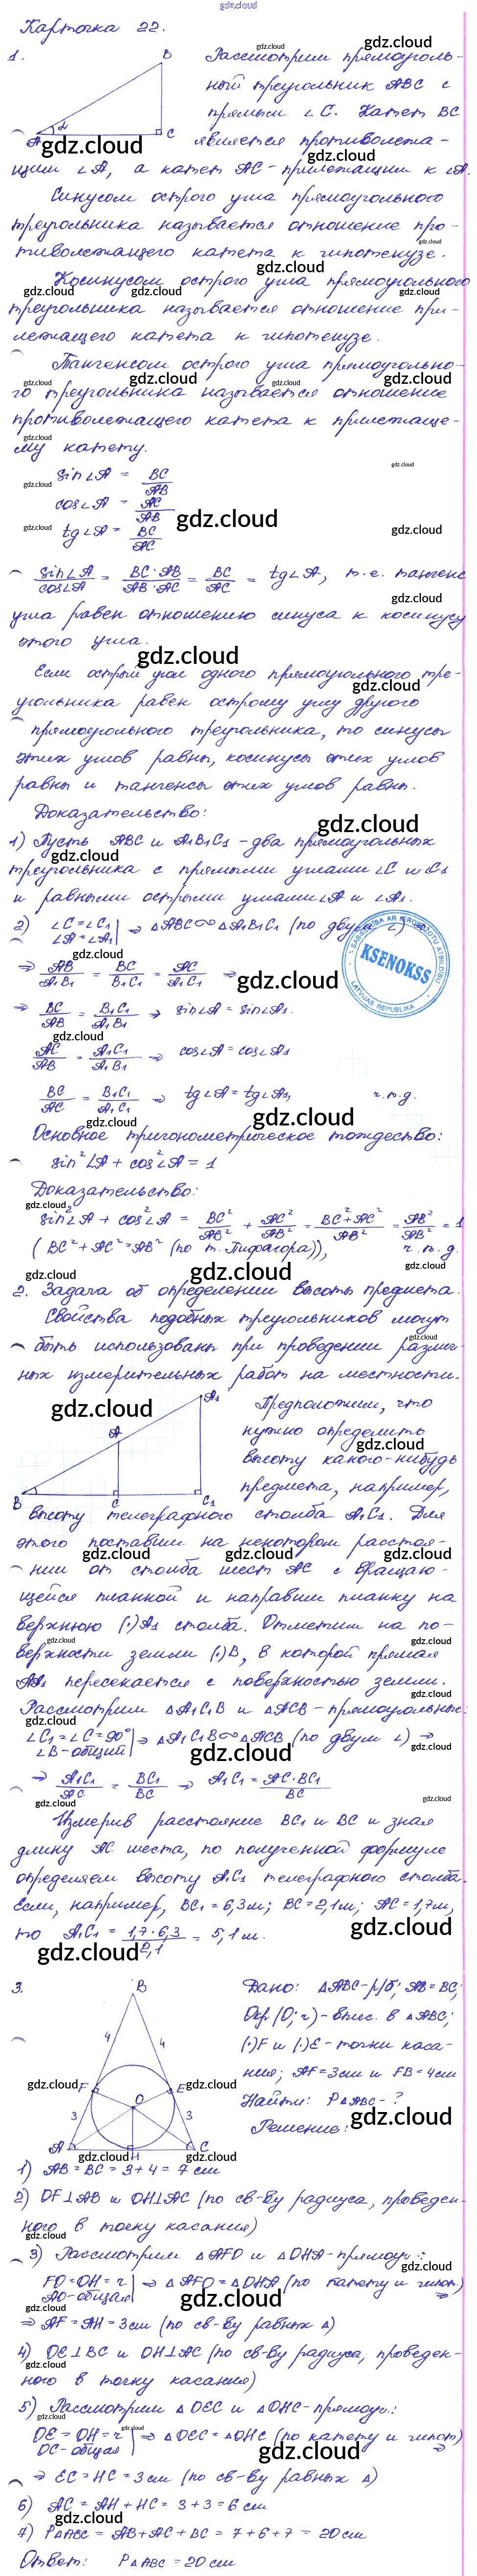 gdz.cloud
Карточка 22.
1. Рассмотрим прямоуголь-
ный треугольник ABC с
прямым ∠C. Катет BC
является противолежа-
щим ∠A, а катет AC - прилежащим к ∠A.
Синусом острого угла прямоугольного
треугольника называется отношение про-
тиволежащего катета к гипотенузе.
Косинусом острого угла прямоугольного
треугольника называется отношение при-
лежащего катета к гипотенузе.
Тангенсом острого угла прямоугольно-
го треугольника называется отношение
противолежащего катета к прилежаще-
му катету.
sin∠A = BC/AB
cos∠A = AC/AB
tg∠A = BC/AC
sin∠A/cos∠A = BC·AB/AB·AC = BC/AC = tg∠A, т.е. тангенс
угла равен отношению синуса к косинусу
этого угла.
Если острый угол одного прямоугольного тре-
угольника равен острому углу другого
прямоугольного треугольника, то синусы
этих углов равны, косинусы этих углов
равны и тангенсы этих углов равны.
Доказательство:
1) Пусть ABC и A1B1C1 - два прямоугольных
треугольника с прямыми углами ∠C и ∠C1
и равными острыми углами ∠A и ∠A1.
2) ∠C=∠C1
∠A=∠A1 | ⇒ △ABC∞△A1B1C1 (по двум ∠) ⇒
⇒ AB/A1B1 = BC/B1C1 = AC/A1C1 ⇒
⇒ BC/AB = B1C1/A1B1 ⇒ sin∠A = sin∠A1.
AC/AB = A1C1/A1B1 ⇒ cos∠A = cos∠A1
BC/AC = B1C1/A1C1 ⇒ tg∠A = tg∠A1, ч.т.д.
Основное тригонометрическое тождество:
sin²∠A + cos²∠A = 1
Доказательство:
sin²∠A + cos²∠A = BC²/AB² + AC²/AB² = BC²+AC²/AB² = AB²/AB² = 1
(BC²+AC²=AB² (по т. Пифагора)), ч.т.д.
2. Задача об определении высоты предмета.
Свойства подобных треугольников могут
быть использованы при проведении различ-
ных измерительных работ на местности.
Предположим, что
нужно определить
высоту какого-нибудь
предмета, например,
высоту телеграфного столба A1C1. Для
этого поставим на некотором расстоя-
нии от столба шест AC с вращаю-
щейся планкой и направим планку на
верхнюю (·)A1 столба. Отметим на по-
верхности земли (·)B, в которой прямая
AA1 пересекается с поверхностью земли.
Рассмотрим △A1C1B и △ACB - прямоугольные:
∠C1=∠C=90°
∠B-общий | ⇒ △A1C1B∞△ACB (по двум ∠) ⇒
⇒ A1C1/AC = BC1/BC ⇒ A1C1 = AC·BC1/BC
Измерив расстояние BC1 и BC и зная
длину AC шеста, по полученной формуле
определяем высоту A1C1 телеграфного столба.
Если, например, BC1 = 6,3м; BC=2,1м; AC=1,7м,
то A1C1 = 1,7·6,3/2,1 = 5,1м.
3. Дано: △ABC-р/б; AB=BC;
Окр(O;r)-впис. в △ABC;
(·)F и (·)E - точки каса-
ния; AF=3см и FB=4см
Найти: P△ABC-?
Решение:
1) AB=BC=3+4=7см
2) OF⊥AB и OH⊥AC (по св-ву радиуса, проведен-
ного в точку касания)
3) Рассмотрим △AFO и △OHA-прямоуг.:
FO=OH=r
AO-общая | ⇒ △AFO=△OHA (по катету и гипот.) ⇒
⇒ AF=AH=3см (по св-ву равных △)
4) OE⊥BC и OH⊥AC (по св-ву радиуса, проведен-
ного в точку касания)
5) Рассмотрим △OEC и △OHC-прямоуг.:
OE=OH=r
OC-общая | ⇒ △OEC=△OHC (по катету и гипот) ⇒
⇒ EC=HC=3см (по св-ву равных △)
6) AC=AH+HC=3+3=6см
7) P△ABC=AB+AC+BC=7+6+7=20см
Ответ: P△ABC=20см
SABIEDRĪBA AR IEROBEŽOTU ATBILDĪBU
KSENOKSS
LATVIJAS REPUBLIKA